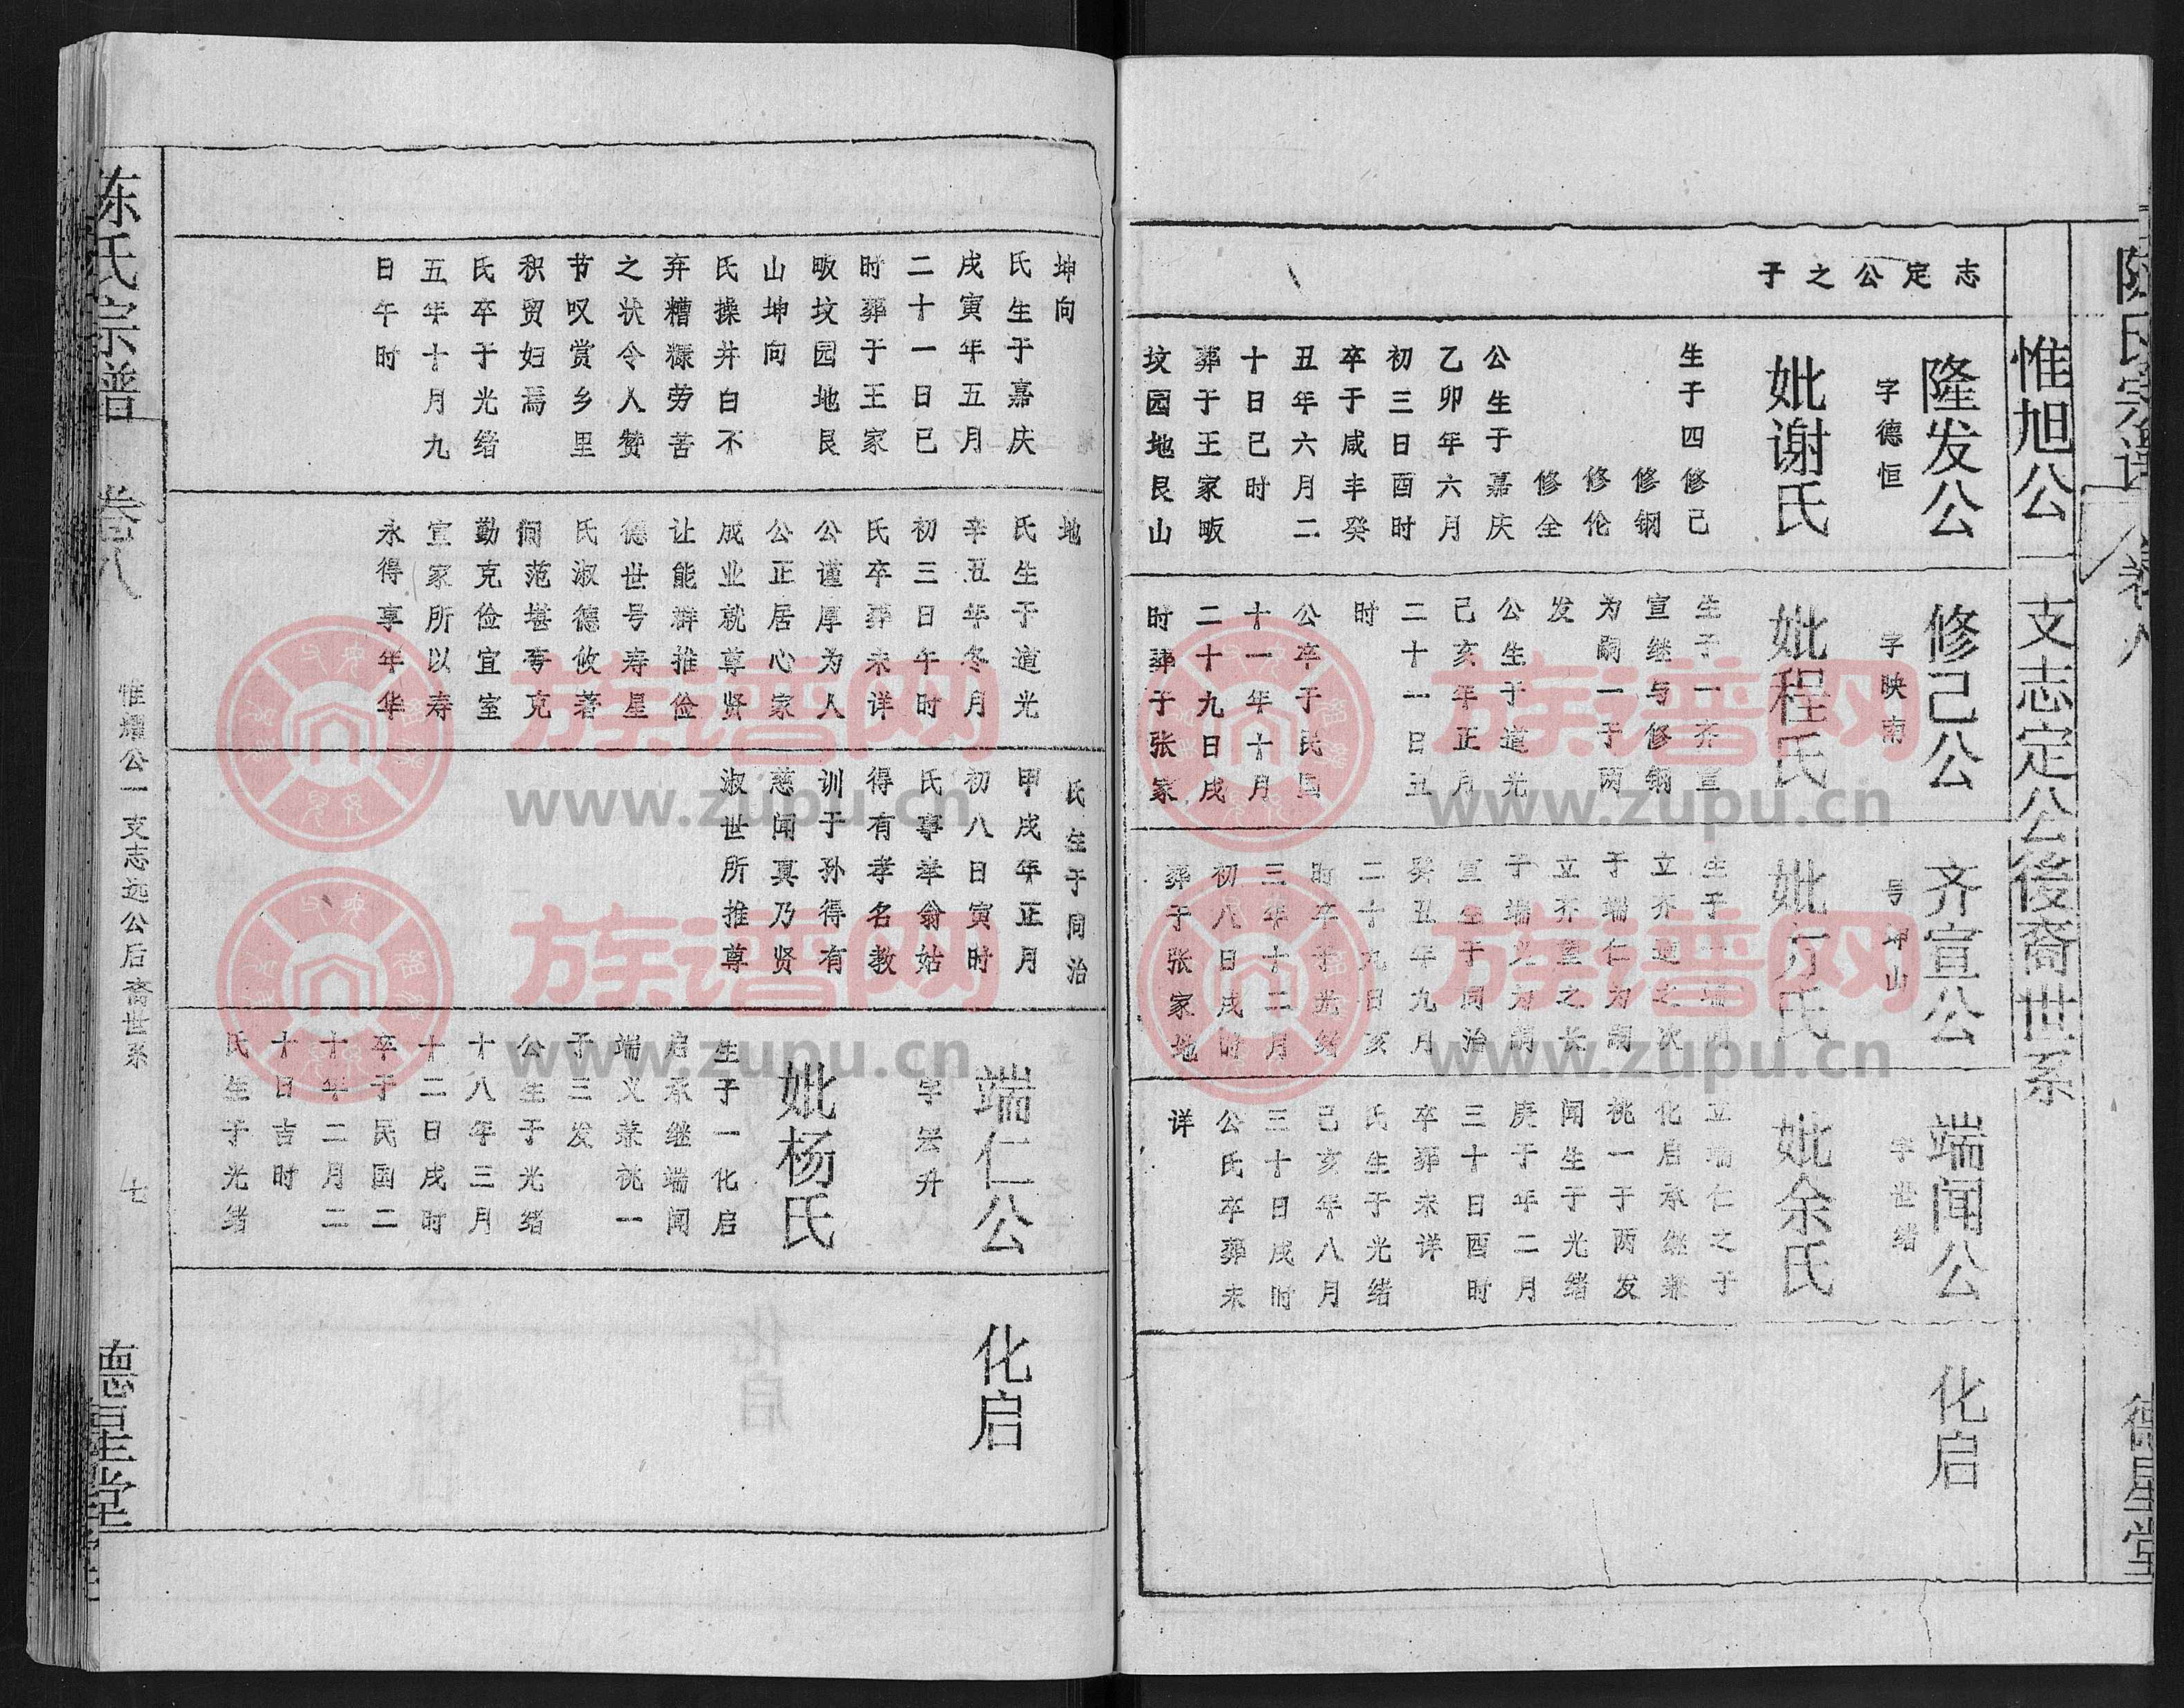 陈氏宗谱
卷八
德星堂
惟旭公一支志定公後裔世系
志定公之子
隆发公
字德恒
妣谢氏
生子四修己
修钢
修伦
修全
公生于嘉庆
乙卯年六月
初三日酉时
卒于咸丰癸
丑年六月二
十日巳时
葬于王家畈
坟园地艮山
修己公
字映南
妣程氏
生子一齐宣
宣继与修钢
为嗣一子两
发
公生于道光
己亥年正月
二十一日丑
时
公卒于民国
十一年十月
二十九日戌
时葬于张家
齐宣公
号坤山
妣方氏
生子一端闻
立齐通之次
子端仁为嗣
立齐重之长
子端义为嗣
宣生于同治
癸丑年九月
二十九日亥
时卒于光绪
三年十二月
初八日戌时
葬于张家地
端闻公
字世绪
妣余氏
立端仁之子
化启承继兼
祧一子两发
闻生于光绪
庚子年二月
三十日酉时
卒葬未详
氏生于光绪
己亥年八月
三十日戌时
公氏卒葬未
详
化启
坤向
氏生于嘉庆
戌寅年五月
二十一日巳
时葬于王家
畈坟园地艮
山坤向
氏操井白不
弃糟糠劳苦
之状令人赞
节叹赏乡里
积贸妇焉
氏卒于光绪
五年十月九
日午时
地
氏生于道光
辛丑年冬月
初三日午时
氏卒葬未详
公谨厚为人
公正居心家
成业就尊贤
让能群推俭
德世号寿星
氏淑德攸著
阃范堪夸克
勤克俭宜室
宜家所以寿
永得享年华
氏生于同治
甲戌年正月
初八日寅时
氏事举翁姑
得有孝名教
训子孙得有
慈闻真乃贤
淑世所推尊
端仁公
字云升
妣杨氏
生子一化启
启承继端闻
端义兼祧一
子三发
公生于光绪
十八年三月
十二日戌时
卒于民国二
十年二月二
十日吉时
氏生于光绪
化启
陈氏宗谱
卷八
惟耀公一支志远公后裔世系
七
德星堂
族谱网
www.zupu.cn
族谱网
www.zupu.cn
族谱网
www.zupu.cn
族谱网
www.zupu.cn